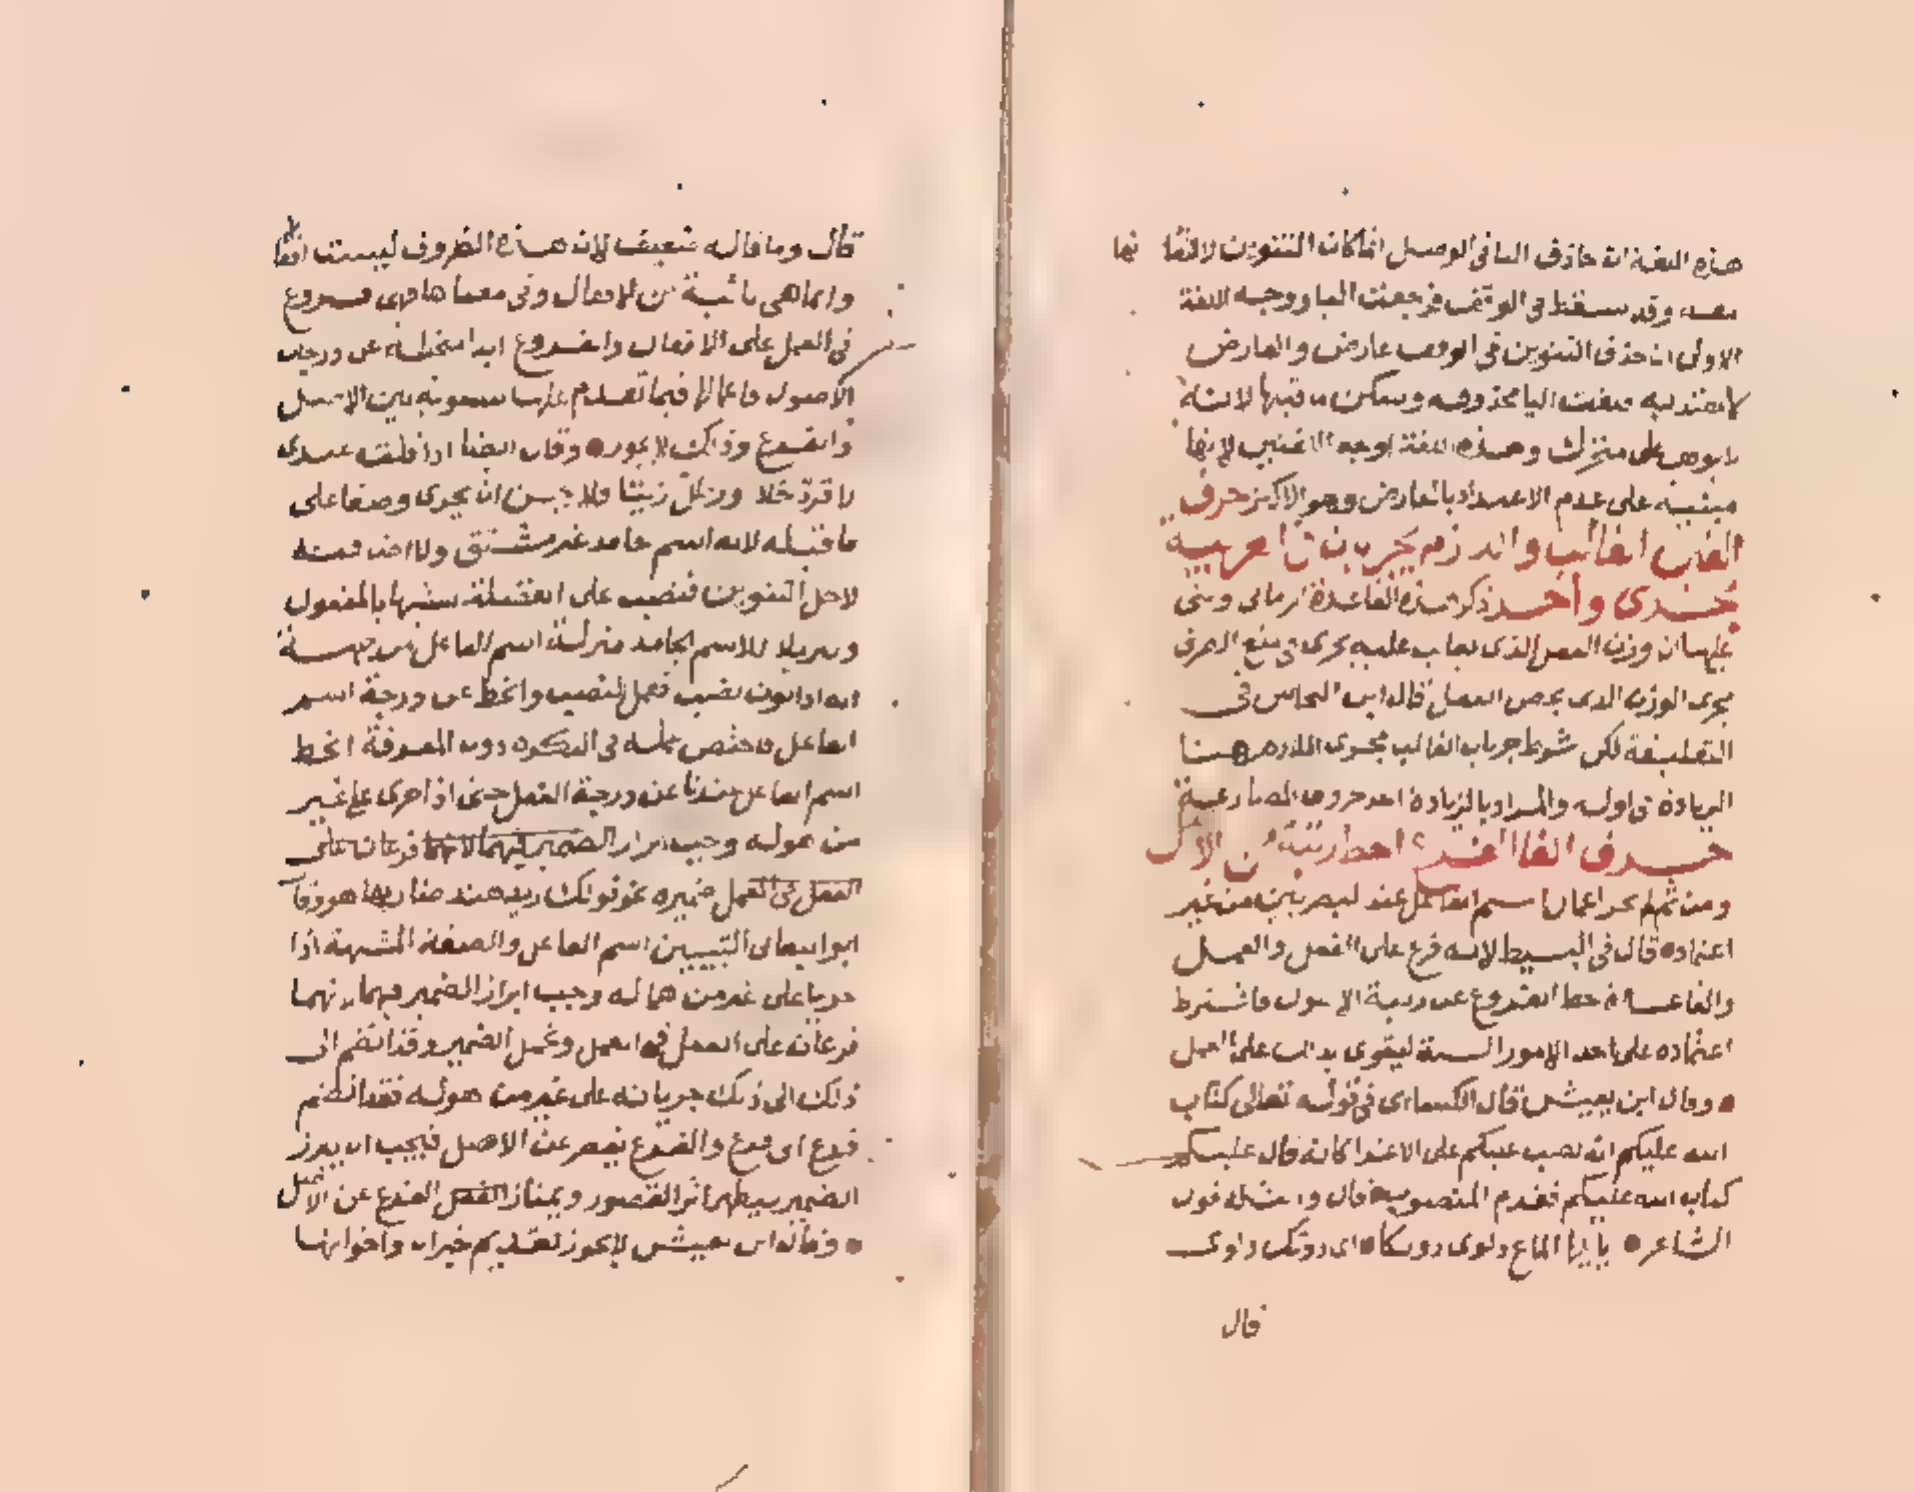 هذه اللغة ان حذف اليا في الوصل انما كان للتنوين لالتقا
معه وقد سقط في الوقف فرجعت اليا ووجه اللغة
الاولى ان حذف التنوين في الوقف عارض والعارض
لا يعتد به فبقيت اليا محذوفة وسكن ما قبلها لانه
لا يوقف على متحرك وهذه اللغة اوجه اللغتين لانها
مبنية على عدم الاعتداد بالعارض وهو الاكثر حرف
الغين الغالب واللازم يجريان في العربية
مجرى واحد ذكر هذه القاعدة الرماني وبنى
عليها ان وزن الفعل الذي يغلب عليه يجري في منع الصرف
مجرى الوزن الذي يخص الفعل قال ابن النحاس في
التعليقة لكن شرط جريان الغالب مجرى اللازم هنا
الزيادة في اوله والمراد بالزيادة احد حروف المضارعة
حرف الفا الفرع احط رتبة من الاصل
ومن ثم لم يجز اعمال اسم الفاعل عند البصريين من غير
اعتماده قال في البسيط لانه فرع على الفعل والعمل
والقاعدة حط الفروع عن رتبة الاصول فاشترط
اعتماده على احد الامور الستة ليقوى بذلك على العمل
وقال ابن يعيش قال الكسائي في قوله تعالى كتاب
الله عليكم انه نصب بعليكم على الاغراء كانه قال عليكم
كتاب الله عليكم فقدم المنصوب قال ومثله قول
الشاعر يا ايها المايح دلوي دونكا اي دونك دلوي
قال
قال وما قاله ضعيف لان هذه الظروف ليست افعالا
وانما هي نائبة عن الافعال وفي معناها فهي فروع
في العمل على الافعال والفروع ابدا منحطة عن درجات
الاصول فاعمالها فيما تقدم عليها تسوية بين الاصل
والفرع وذلك لا يجوز وقال ايضا اذا قلت عندي
راقود خلا ورطل زيتا فلا يحسن ان يجري وصفا على
ما قبله لانه اسم جامد غير مشتق ولا اضافته
لاجل التنوين فنصب على الفضلة تشبيها بالمفعول
وتنزيلا للاسم الجامد منزلة اسم الفاعل من جهة
انه اذا نون نصب فعمل النصب وانحط عن درجة اسم
الفاعل فاختص عمله في النكرة دون المعرفة انحط
اسم الفاعل عن درجة الفعل حتى اذا جرى على غير
من هو له وجب ابراز الضمير
الفعل في العمل ضميره نحو قولك زيد هند ضاربها هو وقال
ابو البقاء في التبيين اسم الفاعل والصفة المشبهة اذا
جريا على غير من هما له وجب ابراز الضمير فيهما لانهما
فرعان على الفعل في العمل وتحمل الضمير وقد انضم الى
ذلك الى ذلك جريانه على غير من هو له فقد انضم
فرع الى فرع والفرع يقصر عن الاصل فيجب ان يبرز
الضمير ليظهر اثر القصور ويمتاز الفرع عن الاصل
وقال ابن يعيش لا يجوز تقديم خبر ان واخواتها